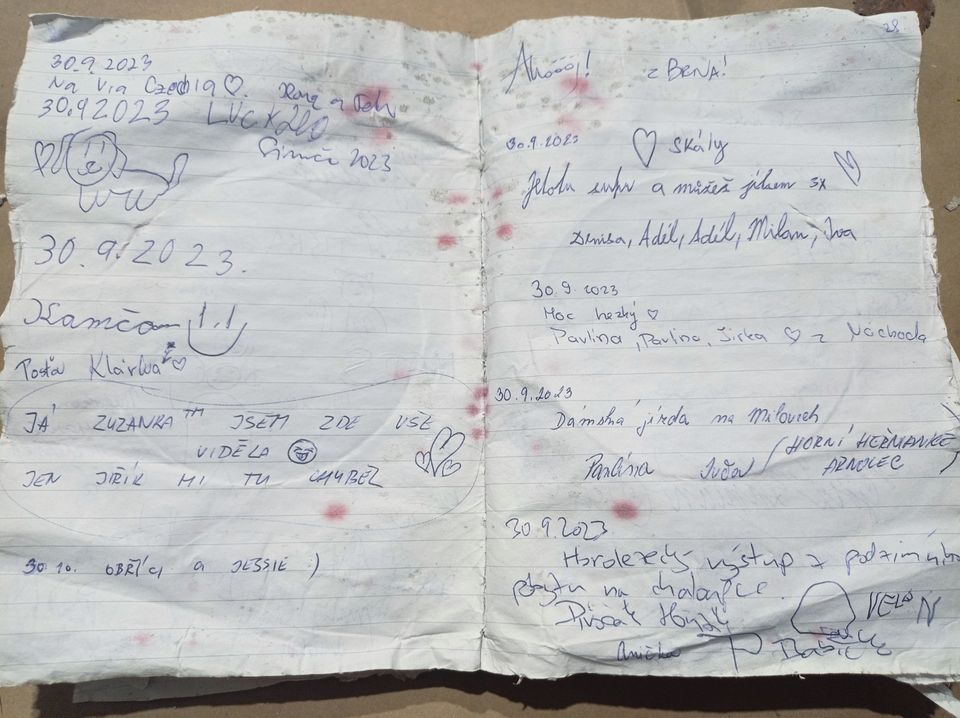 30.9.2023
Na Via Czechia ♡. a
30.9 2023
2023
30.9.2023.
Kamča
Pošťa Klárka ♡
JÁ ZUZANKA™ JSEM ZDE VŠE
VIDĚLA
JEN JIŘÍK MI TU CHYBĚL
30.10. OBŘÍCI a JESSIE :)
28
Ahóój! z BRNA!
30.9.2023 ♡ Skály
a můžeš jídsem 3x
Denisa, Adél, Adél, Milan, Iva
30.9.2023
Moc hezký ♡
Pavlína, Pavlína, Jirka ♡ z Náchoda
30.9.2023
Dámská jízda na Milovech
Pavlína (HORNÍ HEŘMANICE
ARNOLEC)
30.9.2023
Horolezecký výstup z podzimního
pobytu na chaloupce.
Anička Babička